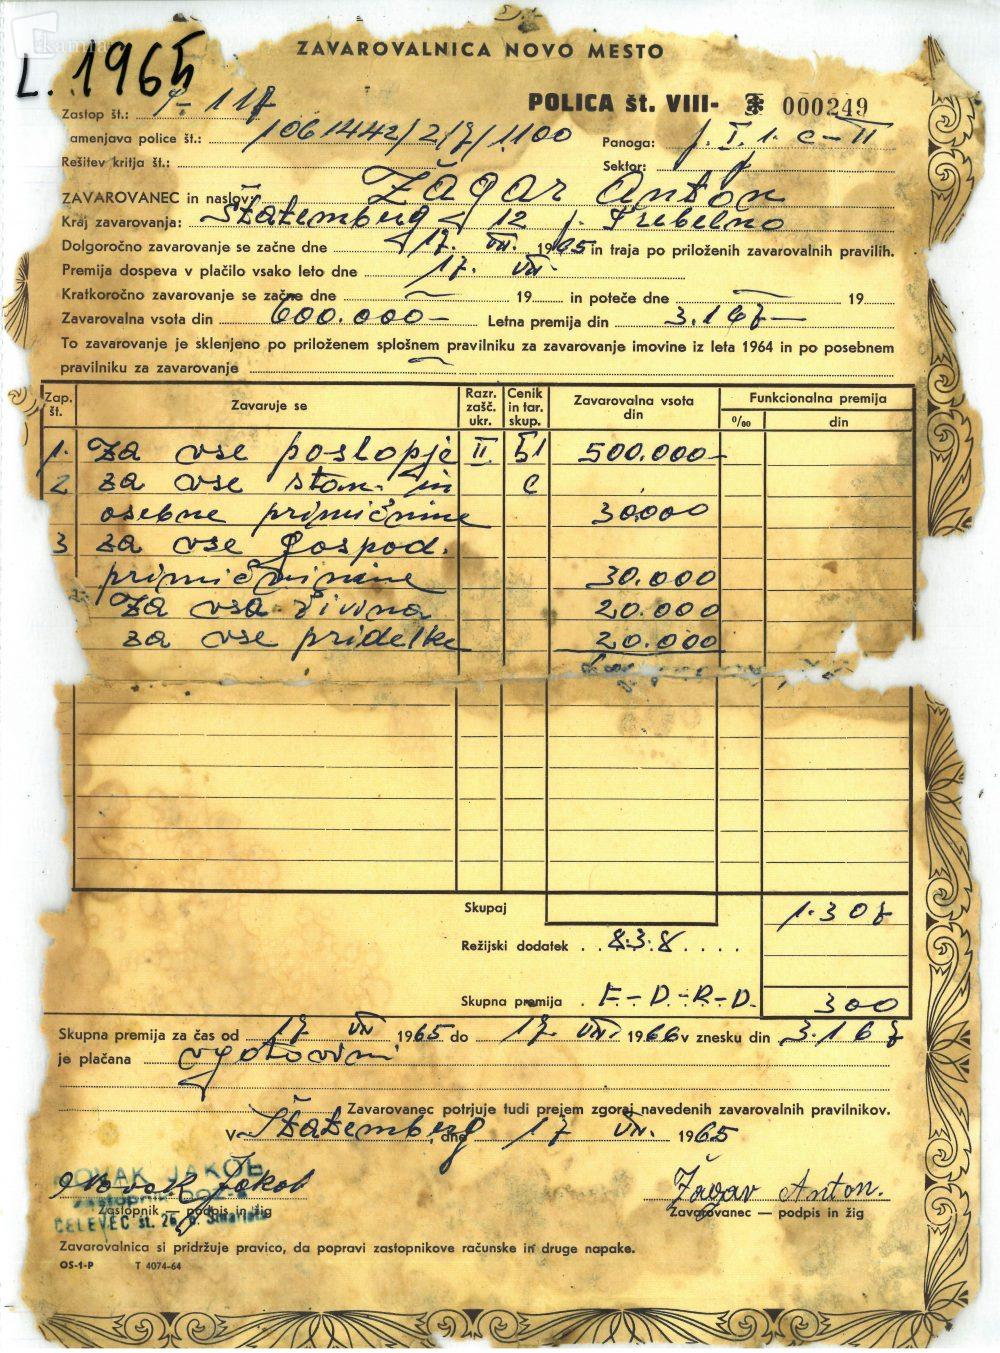 kamra
ZAVAROVALNICA NOVO MESTO
L. 1965
POLICA št. VIII- 000249
Zastop št.: 9-117
amenjava police št.: 1061442/217/1100 Panoga: I. 1. c-II
Rešitev kritja št.: Sektor:
ZAVAROVANEC in naslov: Žagar Anton
Kraj zavarovanja: Štatemberg 12 p. Trebelno
Dolgoročno zavarovanje se začne dne 17. VII. 1965 in traja po priloženih zavarovalnih pravilih.
Premija dospeva v plačilo vsako leto dne 17. VII.
Kratkoročno zavarovanje se začne dne — 19 in poteče dne — 19
Zavarovalna vsota din 600.000— Letna premija din 3.167—
To zavarovanje je sklenjeno po priloženem splošnem pravilniku za zavarovanje imovine iz leta 1964 in po posebnem
pravilniku za zavarovanje —
Zap. št. Zavaruje se Razr. zašč. ukr. Cenik in tar. skup. Zavarovalna vsota din Funkcionalna premija
‰ din
1. Za vse poslopje II 51 500.000-
2 za vse stan. in c
osebne primičnine 30.000
3 za vse gospod.
primičninine 30.000
Za vsa živina 20.000
za vse pridelke 20.000
Skupaj 1.307
Režijski dodatek 838
Skupna premija F-D-R-D. 300
Skupna premija za čas od 17 VII 1965 do 17. VII 1966 v znesku din 3.167
je plačana vgotovini
Zavarovanec potrjuje tudi prejem zgoraj navedenih zavarovalnih pravilnikov.
V Štatemberg, dne 17 VII. 1965
NOVAK JAKOB
Novak Jakob Žagar Anton.
Zastopnik — podpis in žig Zavarovanec — podpis in žig
CELEVEC št. 26
Zavarovalnica si pridržuje pravico, da popravi zastopnikove računske in druge napake.
OS-1-P T 4074-64